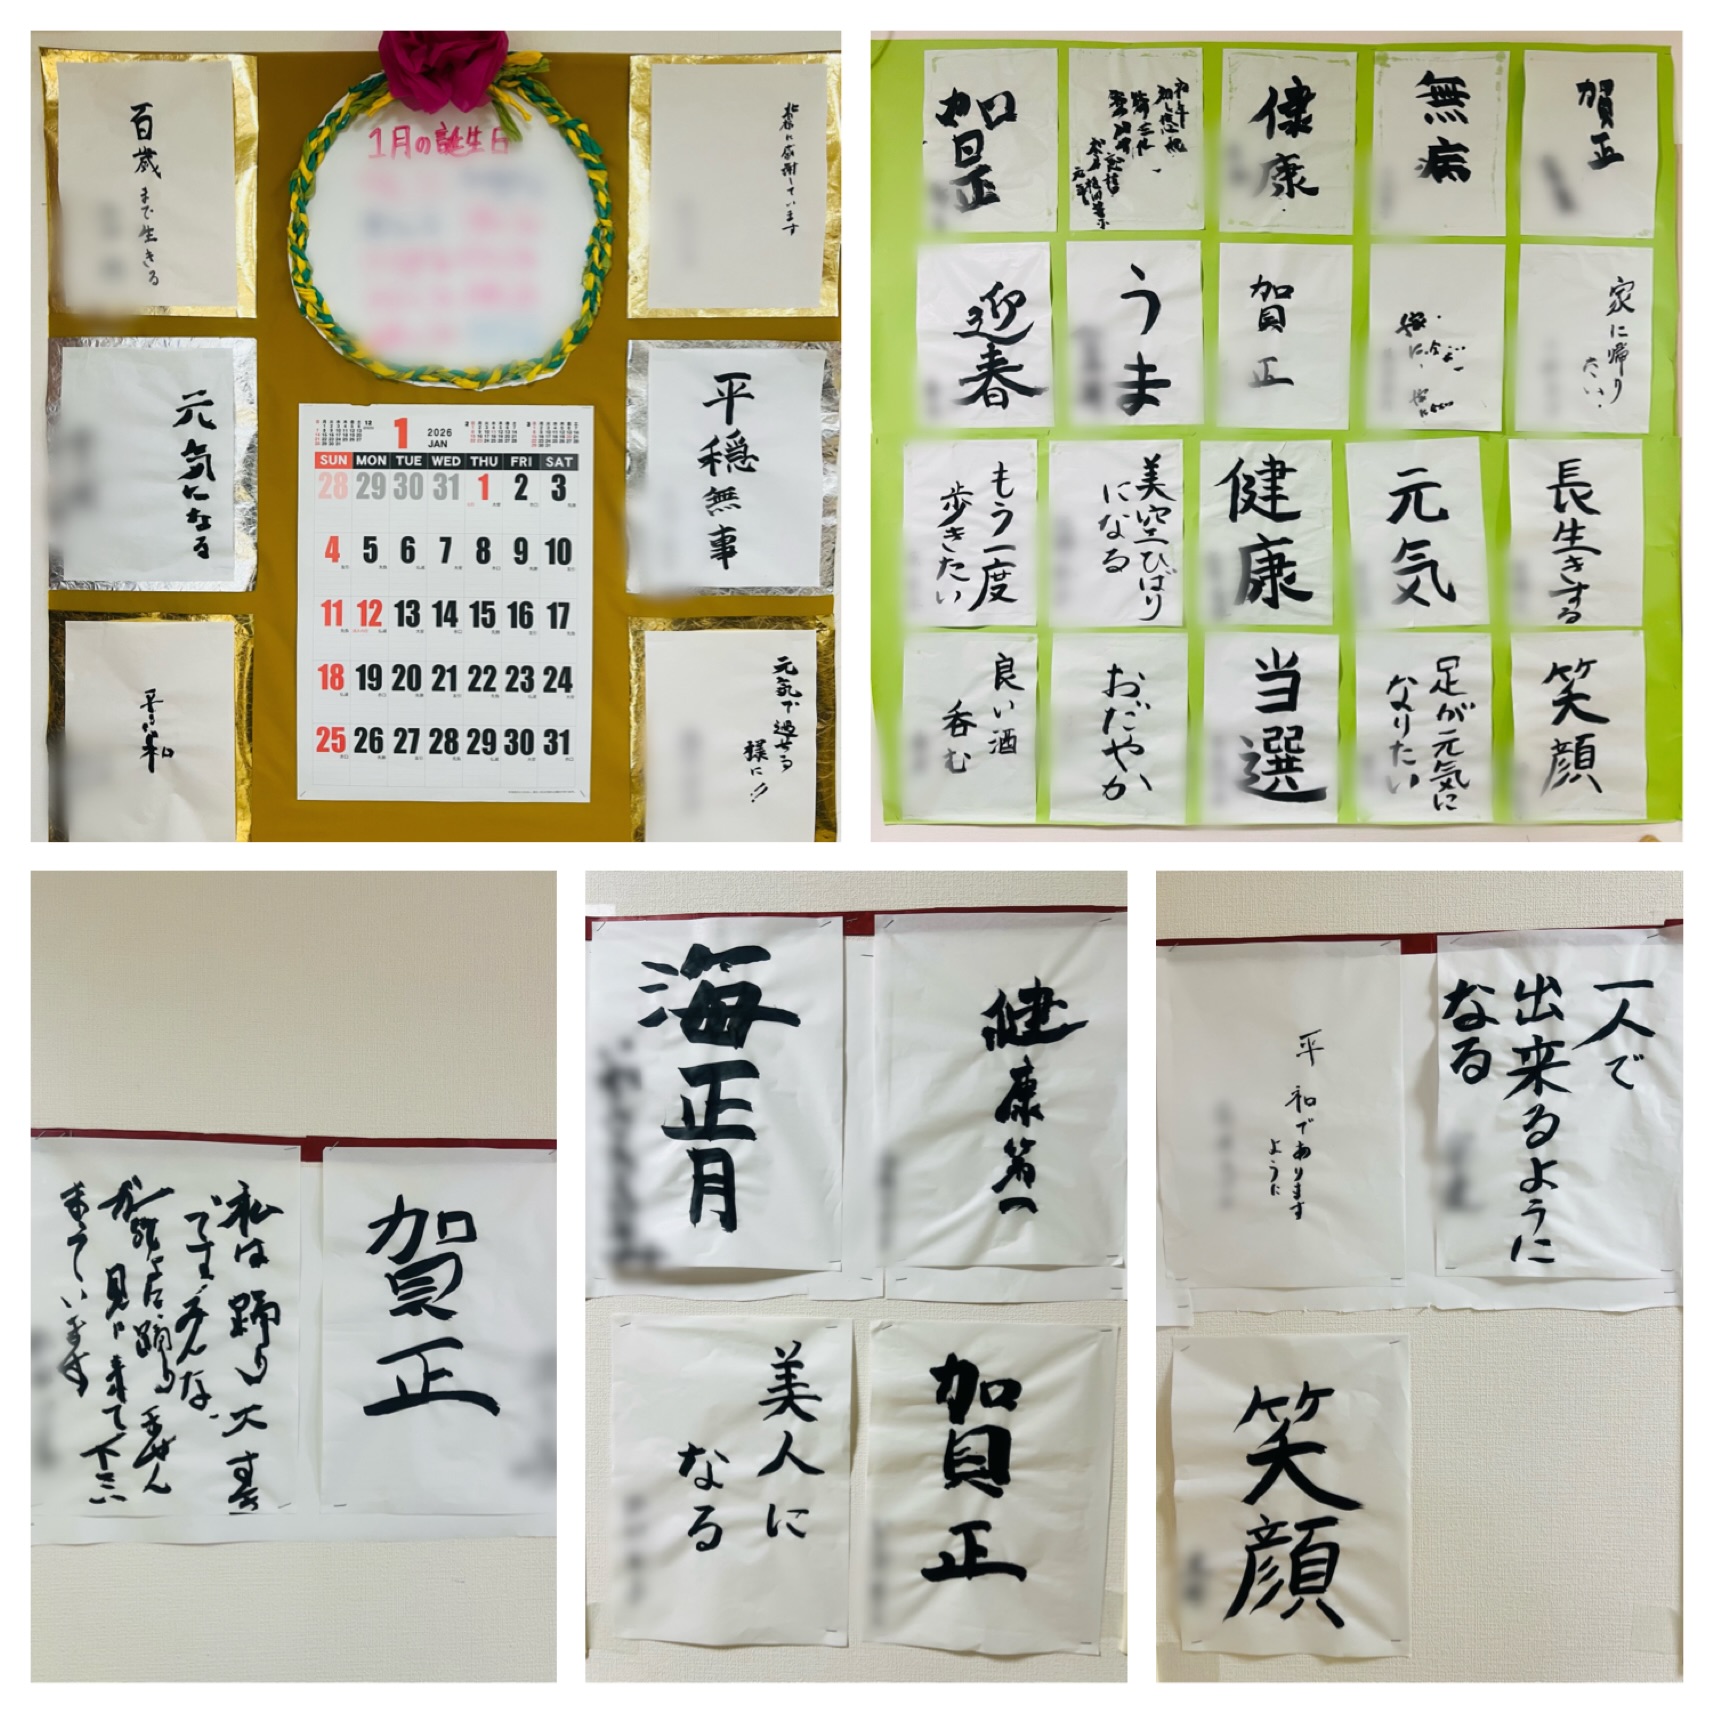 百歳まで生きる
元気になる
平和
1月の誕生日
1 2026 JAN
SUN MON TUE WED THU FRI SAT
28 29 30 31 1 2 3
4 5 6 7 8 9 10
11 12 13 14 15 16 17
18 19 20 21 22 23 24
25 26 27 28 29 30 31
に感謝しています
平穏無事
元気で過せる
様に!!
賀正
健康
無病
賀正
迎春
うま
賀正
家に帰り
たい.
もう一度
歩きたい
美空ひばり
になる
健康
元気
長生きする
良い酒
呑む
おだやか
当選
足が元気に
なりたい
笑顔
私は踊り大好き
です、みんな
見に来て下さい
まっています
賀正
海正月
健康第一
美人に
なる
賀正
平和であります
ように
一人で
出来るように
なる
笑顔